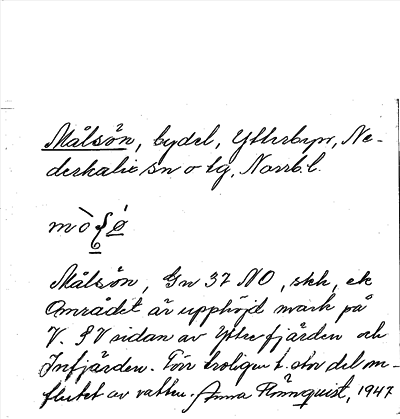 Målsön, bydel, Ytterbyn, Ne-
derkalix sn o tg, Norrb.l.
Målsön, Gn 37 NO, skk, ek
Området är upphöjd mark på
V. SV sidan av Ytterfjärden och
Infjärden. Förr troligen t. stor del om-
flutet av vatten. Anna Rönnquist, 1947